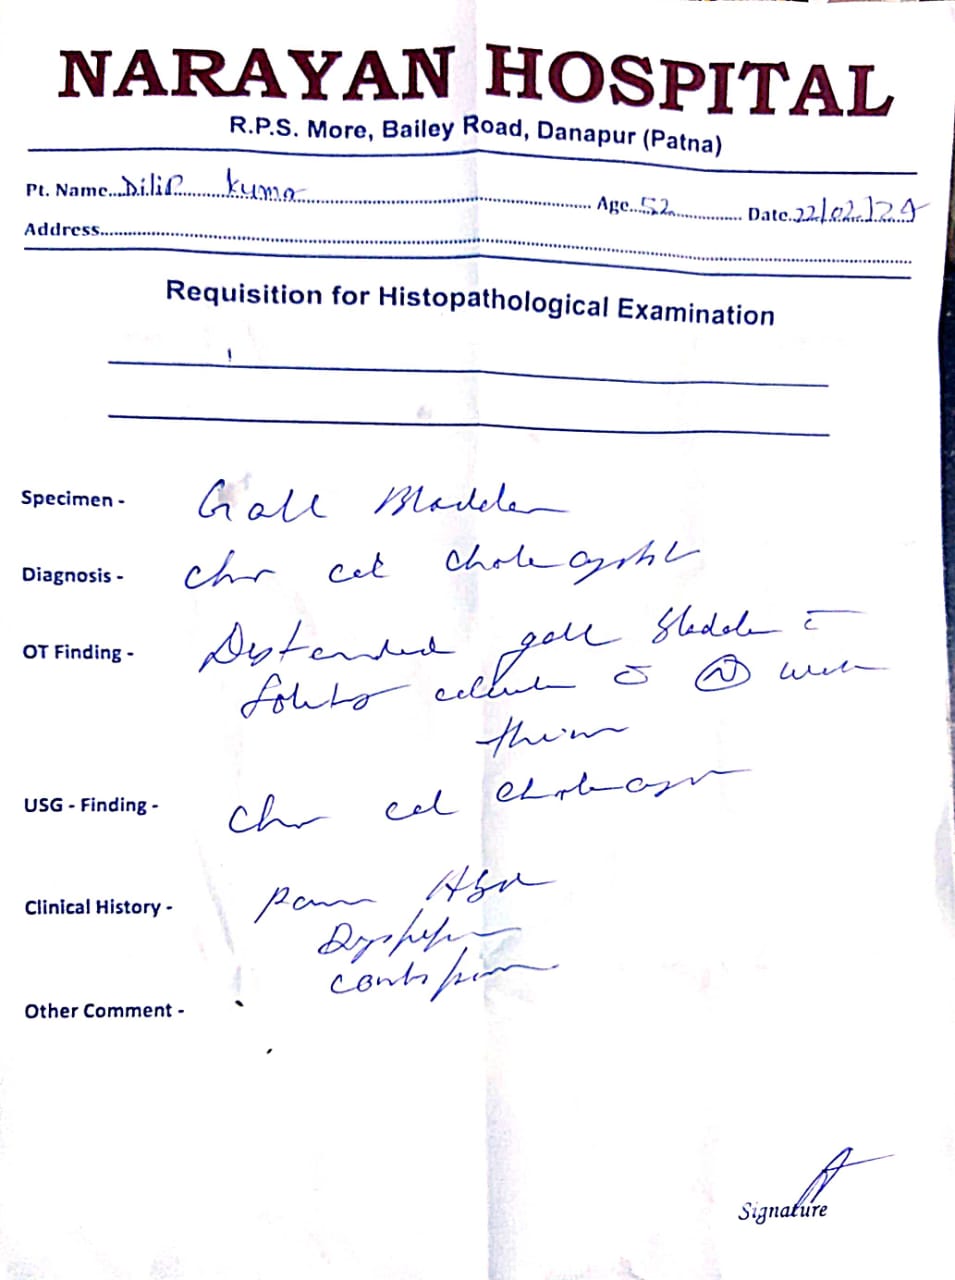 NARAYAN HOSPITAL
R.P.S. More, Bailey Road, Danapur (Patna)
Pt. Name...Dilip Kumar Age..52 Date.22/02/24
Address
Requisition for Histopathological Examination
Specimen - Gall Bladder
Diagnosis - Chr cal cholecystit
OT Finding - Distended gall bladder c̄
calculus c̄ Ⓝ wall
USG - Finding - Chr cal cholecys
Clinical History - Pain Abd
Dyspepsia
Constipation
Other Comment -
Signature